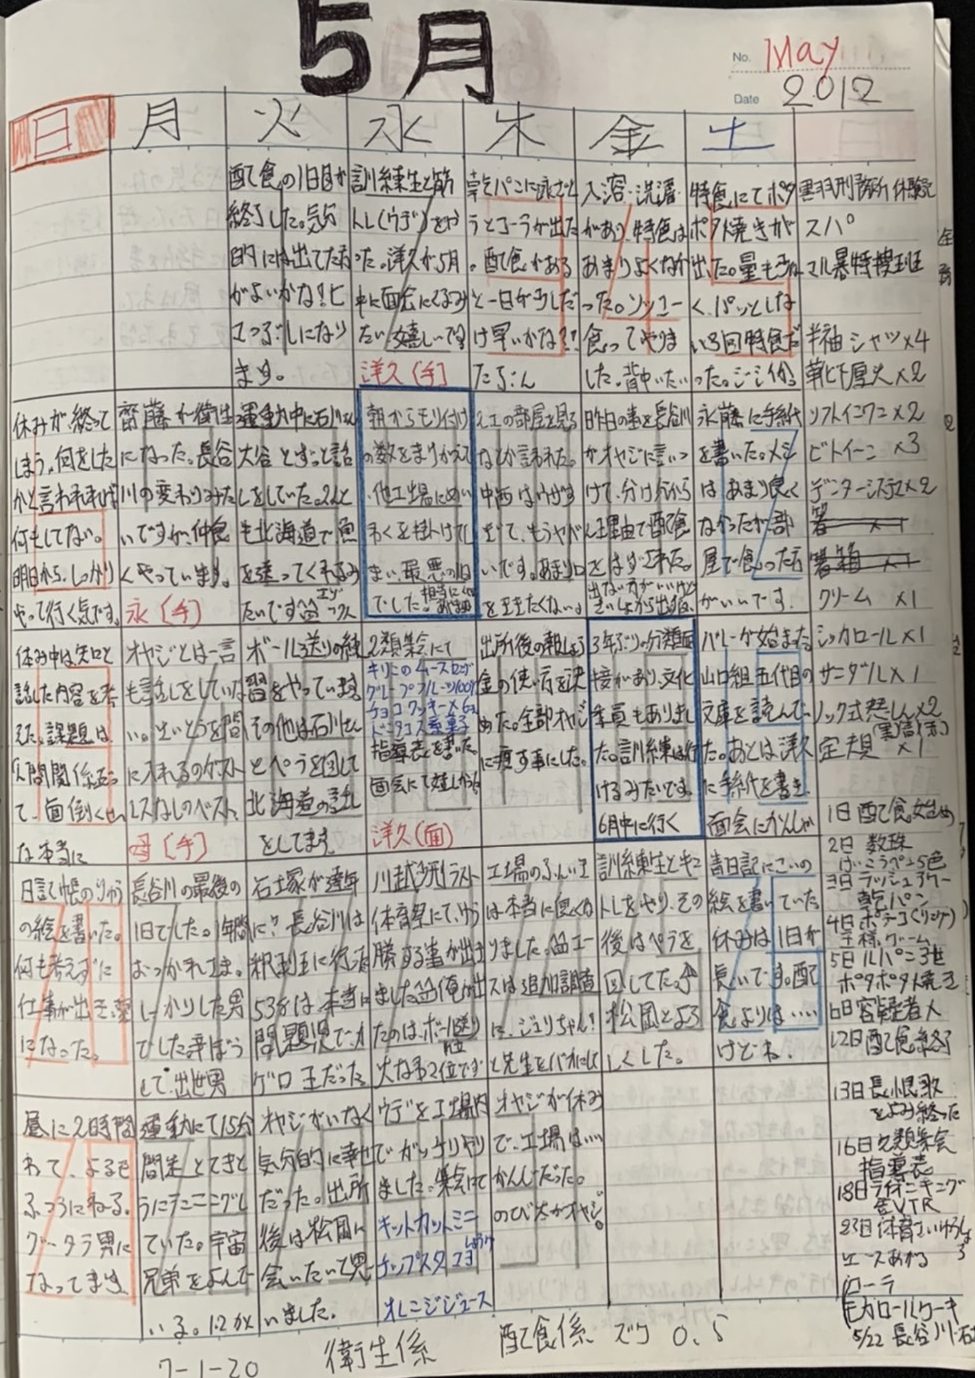 5月
No. May
Date 2012
日 月 火 水 木 金 土
配食の1日目が
終了した。気分
的には出てた方
がよいかな?ヒ
マつぶしになり
ます。
訓練生と筋
トレ(ウデ)をや
った。洋久が5月
中に面会にくるみ
たい嬉しいです
洋久(手)
うとコーラが出た
。配食がある
と一日が少しだ
け早いかな??
たぶん
入浴・洗濯
があり、特食は
あまりよくなか
った。ソッコー
食ってやりま
した。背中いたい
特食にてポタ
ポタ焼きが
出た。量も少な
く、パッとしな
い3回特食だ
った。
黒羽刑務所体験記
スパ
マル暴特捜班
半袖シャツ×4
休みが終って
しまう。何をした
かと言われれば
何もしてない。
明日から、しっかり
やって行く気です。
齋藤が衛生
になった。長谷
川の変わりみた
いですが、仲良
くやっています。
永(手)
運動中に石川さん
大谷とずっと話
しをしていた。2人と
も北海道で魚
を送ってくれるみ
たいです
朝からもり付け
の数をまちがえて
、他工場にめい
わくを掛けてし
まい、最悪の1日
でした。
2工の部屋を見る
なとか言われた。
いです。あまり口
をききたくない。
昨日の事を長谷川
がオヤジに言いつ
けて、分けわから
ん理由で配食
をはずされた。
永藤に手紙
を書いた。メシ
はあまり良く
なかったが部
屋で食った方
がいいです。
ソフトイワニ×2
ビトイーン×3
デンターシステマ×2
箸 ×1
箸箱 ×1
クリーム ×1
休み中は矢口と
話した内容を考
えた。課題は
人間関係であっ
て、面倒くせぇ
な本当に
オヤジとは一言
も話しをしていな
い。せいとうを間
に入れるのがスト
レスなしのベスト。
母(手)
ボール送りの練
習をやっています。
その他は石川さん
とペラを回して
北海道の話
をしてます。
2類集会にて
グレープフルーツ100%
チョコクッキー×6コ
指導表を書いた。
面会にて嬉しかった
洋久(面)
出所後の報しょう
金の使い方を決
めた。全部オヤジ
に渡す事にした。
3年ぶりの分類面
接があり、文化
委員もありまし
た。訓練は行
けるみたいです。
6月中に行く
バレーが始まった
山口組五代目の
文庫を読んで
た。あとは、洋久
に手紙を書き
面会にかんしゃ
シッカロール×1
サンダル×1
ノック式消しゴム×2
定規 ×1
1日 配食始め
2日 数珠
3日ラッシュアワー
乾パン
5日 ルパン3世
ポタポタ焼き
6日容疑者A
12日配食終了
日記帳のりゅう
の絵を書いた。
何も考えずに
仕事が出き、楽
になった。
長谷川の最後の
1日でした。1年間
おつかれさま。
しっかりした男
でした。手ぼう
して出世男
石塚が達年
に?長谷川は
釈前工に行き
53分は、本当に
問題児でした
ゲロ王だった。
川越少刑ラスト
体育祭にて、ゆう
勝する事が出き
ました。俺が出
たのは、ボール送り
大なわ2位です
工場のふんいき
は本当に良くな
りました。エー
スは追加調査
に、ジェリちゃん!
と先生をバカにし
訓練生とキン
トレをやり、その
後はペラを
回してた。
松岡とよろ
しくした。
昔日記にこいの
絵を書いていた
休みは1日が
長いです。配
食よりは‥‥
けどね。
13日長恨歌
をよみ終った
16日2類集会
指導表
18日ライオンキング
金VTR
23日体育さいゆうしょう
エースあがる
コーラ
モカロールケーキ
5/22 長谷川・石
昼に2時間
ねて、よるも
ふつうにねる。
グータラ男に
なってます。
運動にて15分
間走とてきと
うにテニニングし
ていた。宇宙
兄弟をよんで
いる。
オヤジがいなく
気分的に幸せ
だった。出所
後は松岡に
会いたいて男
いました。
ウデを工場内
でガッツリやり
ました。集会にて
キットカットミニ
チップスタ
オレンジジュース
オヤジが休み
で、工場はいい
かんじだった。
のび太がオヤジ。
7-1-20 衛生係 配食係 ズク 0.5